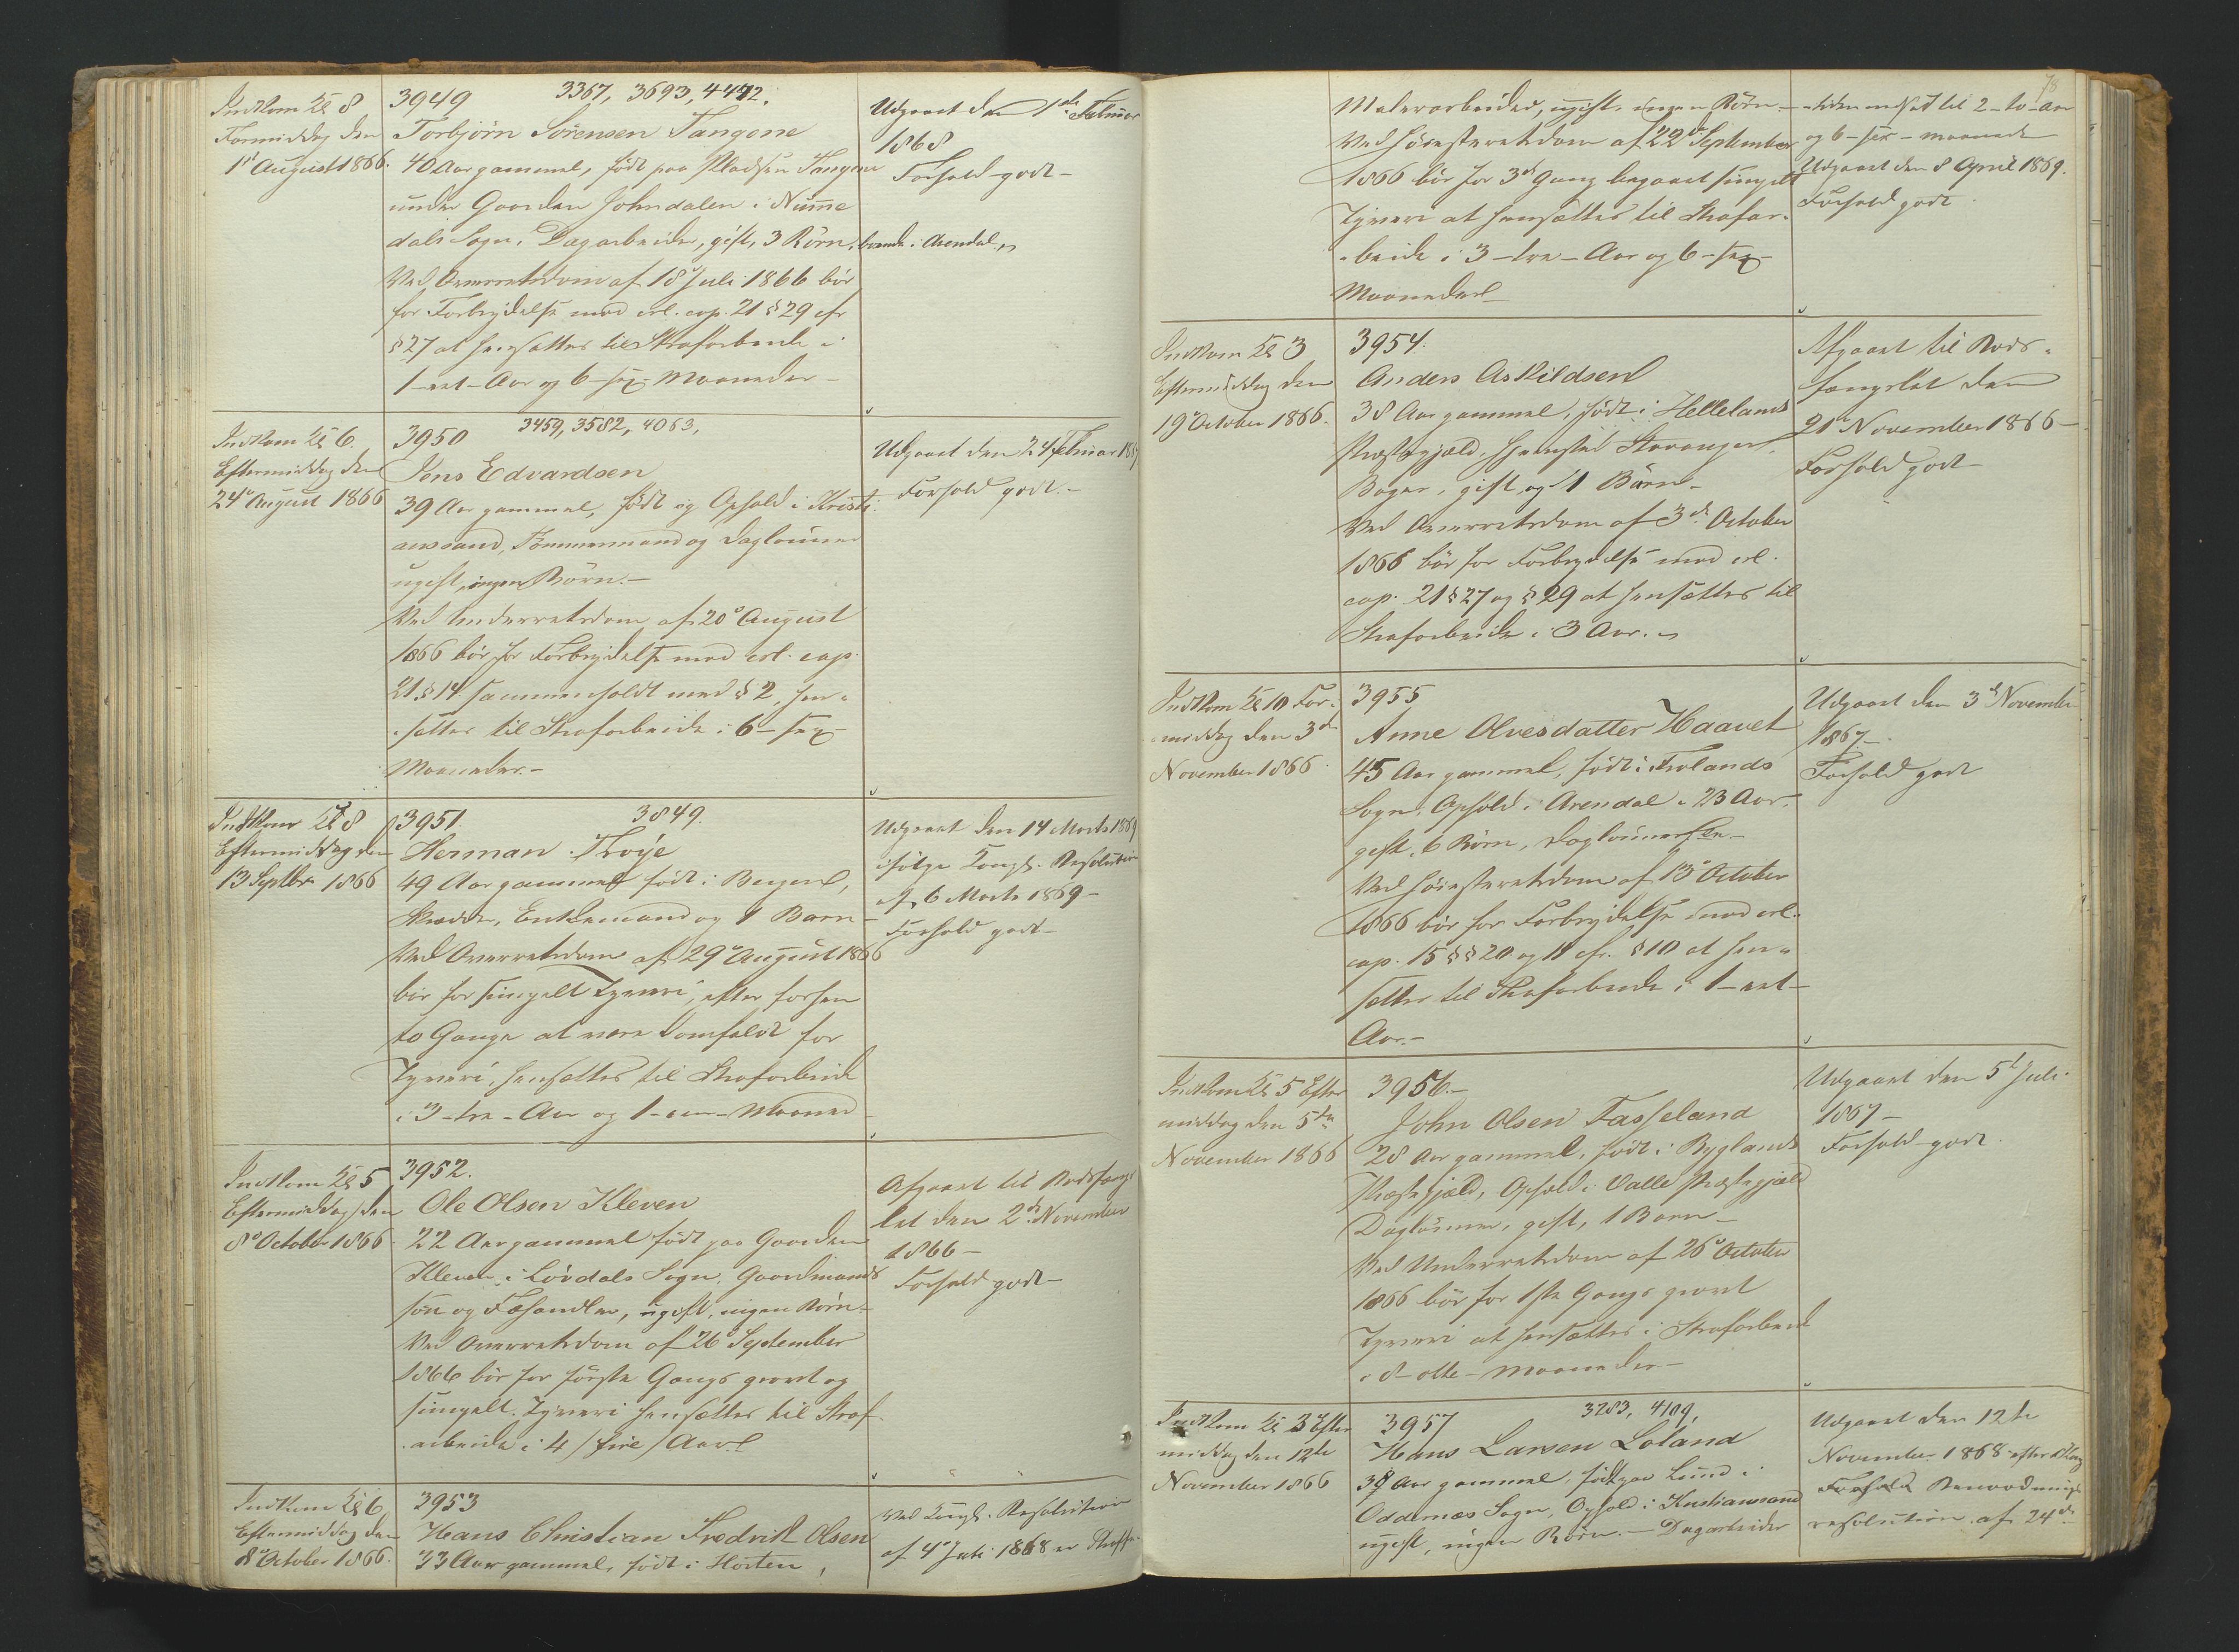 Indkom Kl 8
Formiddag den
1ste August 1866.
3949 3367, 3693, 4442.
Torbjörn Sörensen Tangene
40 Aar gammel, födt paa Pladsen Tangene
under Gaarden Johndalen i Numme
dals Sogn, Dagarbeider, gift, 3 Börn, boende i Arendal
Ved Overretsdom af 18 Juli 1866 bör
for Forbrydelse mod crl. cap. 21 § 29 cfr
§ 27 at hensættes til Strafarbeide i
1 - eet - Aar og 6 - sex - Maaneder -
Udgaaet den 1ste Februar
1868
Forhold godt -
Indkom Kl 6.
Eftermiddag den
24de August 1866
3950 3459, 3582, 4063,
Jens Edvardsen
39 Aar gammel, födt og Ophold i Kristi-
anssand, Tömmermand og Daglönner
ugift, ingen Börn. -
Ved Underretsdom af 20de August
1866 bör for Forbrydelse mod crl. cap.
21 § 14 sammenholdt med § 2, hen-
sættes til Strafarbeide i 6 - sex -
Maaneder. -
Udgaaet den 24 Februar 1867
Forhold godt. -
Indkom Kl 8
Eftermiddag den
13 Septbr 1866
3951. 3849.
Herman Troye
49 Aar gammel födt i Bergen,
Skrædder, Enkemand og 1 Barn -
Ved Overretsdom af 29de August 1866
bör for simpelt Tyveri, efter forhen
to Gange at være Domfeldt for
Tyveri, hensættes til Strafarbeide
i 3 - tre - Aar og 1 - een - Maaned -
Udgaaet den 14 Marts 1869
ifölge Kongl. Resolution
af 6 Marts 1869 -
Forhold godt -
Indkom Kl 5
Eftermiddag den
8de October 1866
3952.
Ole Olsen Kleven
22 Aar gammel födt paa Gaarden
Kleven i Lövdals Sogn. Gaardmands
sön og Fæhandler, ugift, ingen Börn -
Ved Overretsdom af 26 September
1866 bör for förste Gangs grovt og
simpelt Tyveri hensættes til Straf-
arbeide i 4 / fire / Aar.
Afgaaet til Bodsfængs
let den 2den November
1866 -
Forhold godt -
Indkom Kl 6
Eftermiddag den
8de October 1866.
3953
Hans Christian Fredrik Olsen
33 Aar gammel, födt i Horten,
Ved Kongl. Resolution
af 4de Juli 1868 er Straffe-
78
Malerarbeider, ugift, ingen Börn -
Ved Höiesteretsdom af 22de September
1866 bör for 3de Gang begaaet simpelt
Tyveri at hensættes til Strafar-
beide i 3 - tre - Aar og 6 - sex -
Maaneder
tiden nedsat til 2 - to - Aar
og 6 - sex - maaneder
Udgaaet den 8 April 1869.
Forhold godt.
Indkom Kl 3
Eftermiddag den
19de October 1866.
3954.
Anders Askildsen
38 Aar gammel, födt i Hellelands
Præstegjæld, Hjemsted Stavanger,
Bager, gift og 1 Barn -
Ved Overretsdom af 3de October
1866 bör for Forbrydelse mod crl.
cap. 21 § 27 og § 29 at hensættes til
Strafarbeide i 3 Aar.
Afgaaet til Bods-
fængslet den
21de November 1866 -
Forhold godt -
Indkom Kl 10 For-
middag den 3de
November 1866.
3955
Anne Olvesdatter Haavet
45 Aar gammel, födt i Frolands
Sogn, Ophold i Arendal i 23 Aar,
gift, 6 Börn, Daglönnerske -
Ved Höiesteretsdom af 13de October
1866 bör for Forbrydelse mod crl.
cap. 15 §§ 20 og 11 cfr. § 10 at hen-
sættes til Strafarbeide i 1 - eet -
Aar. -
Udgaaet den 3de November
1867. -
Forhold godt
Indkom Kl 5 Efter
middag den 5te
November 1866
3956. -
John Olsen Fasseland
28 Aar gammel, födt i Byglands
Præstegjæld, Ophold i Valle Præstegjæld
Daglönner, gift, 1 Barn -
Ved Underretsdom af 26de October
1866 bör for 1ste Gangs grovt
Tyveri at hensættes i Strafarbeide
i 8 - otte - Maaneder. -
Udgaaet den 5te Juli
1867 -
Forhold godt.
Indkom Kl 3 Efter
middag den 12te
November 1866
3957 3283, 4189,
Hans Larsen Loland
38 Aar gammel, födt paa Lund i
Oddernæs Sogn, Ophold i Kristianssand
ugift, ingen Börn. - Dagarbeider
Udgaaet den 12te
November 1868 efter Kongl
Forhold Benaadnings
resolution af 24de